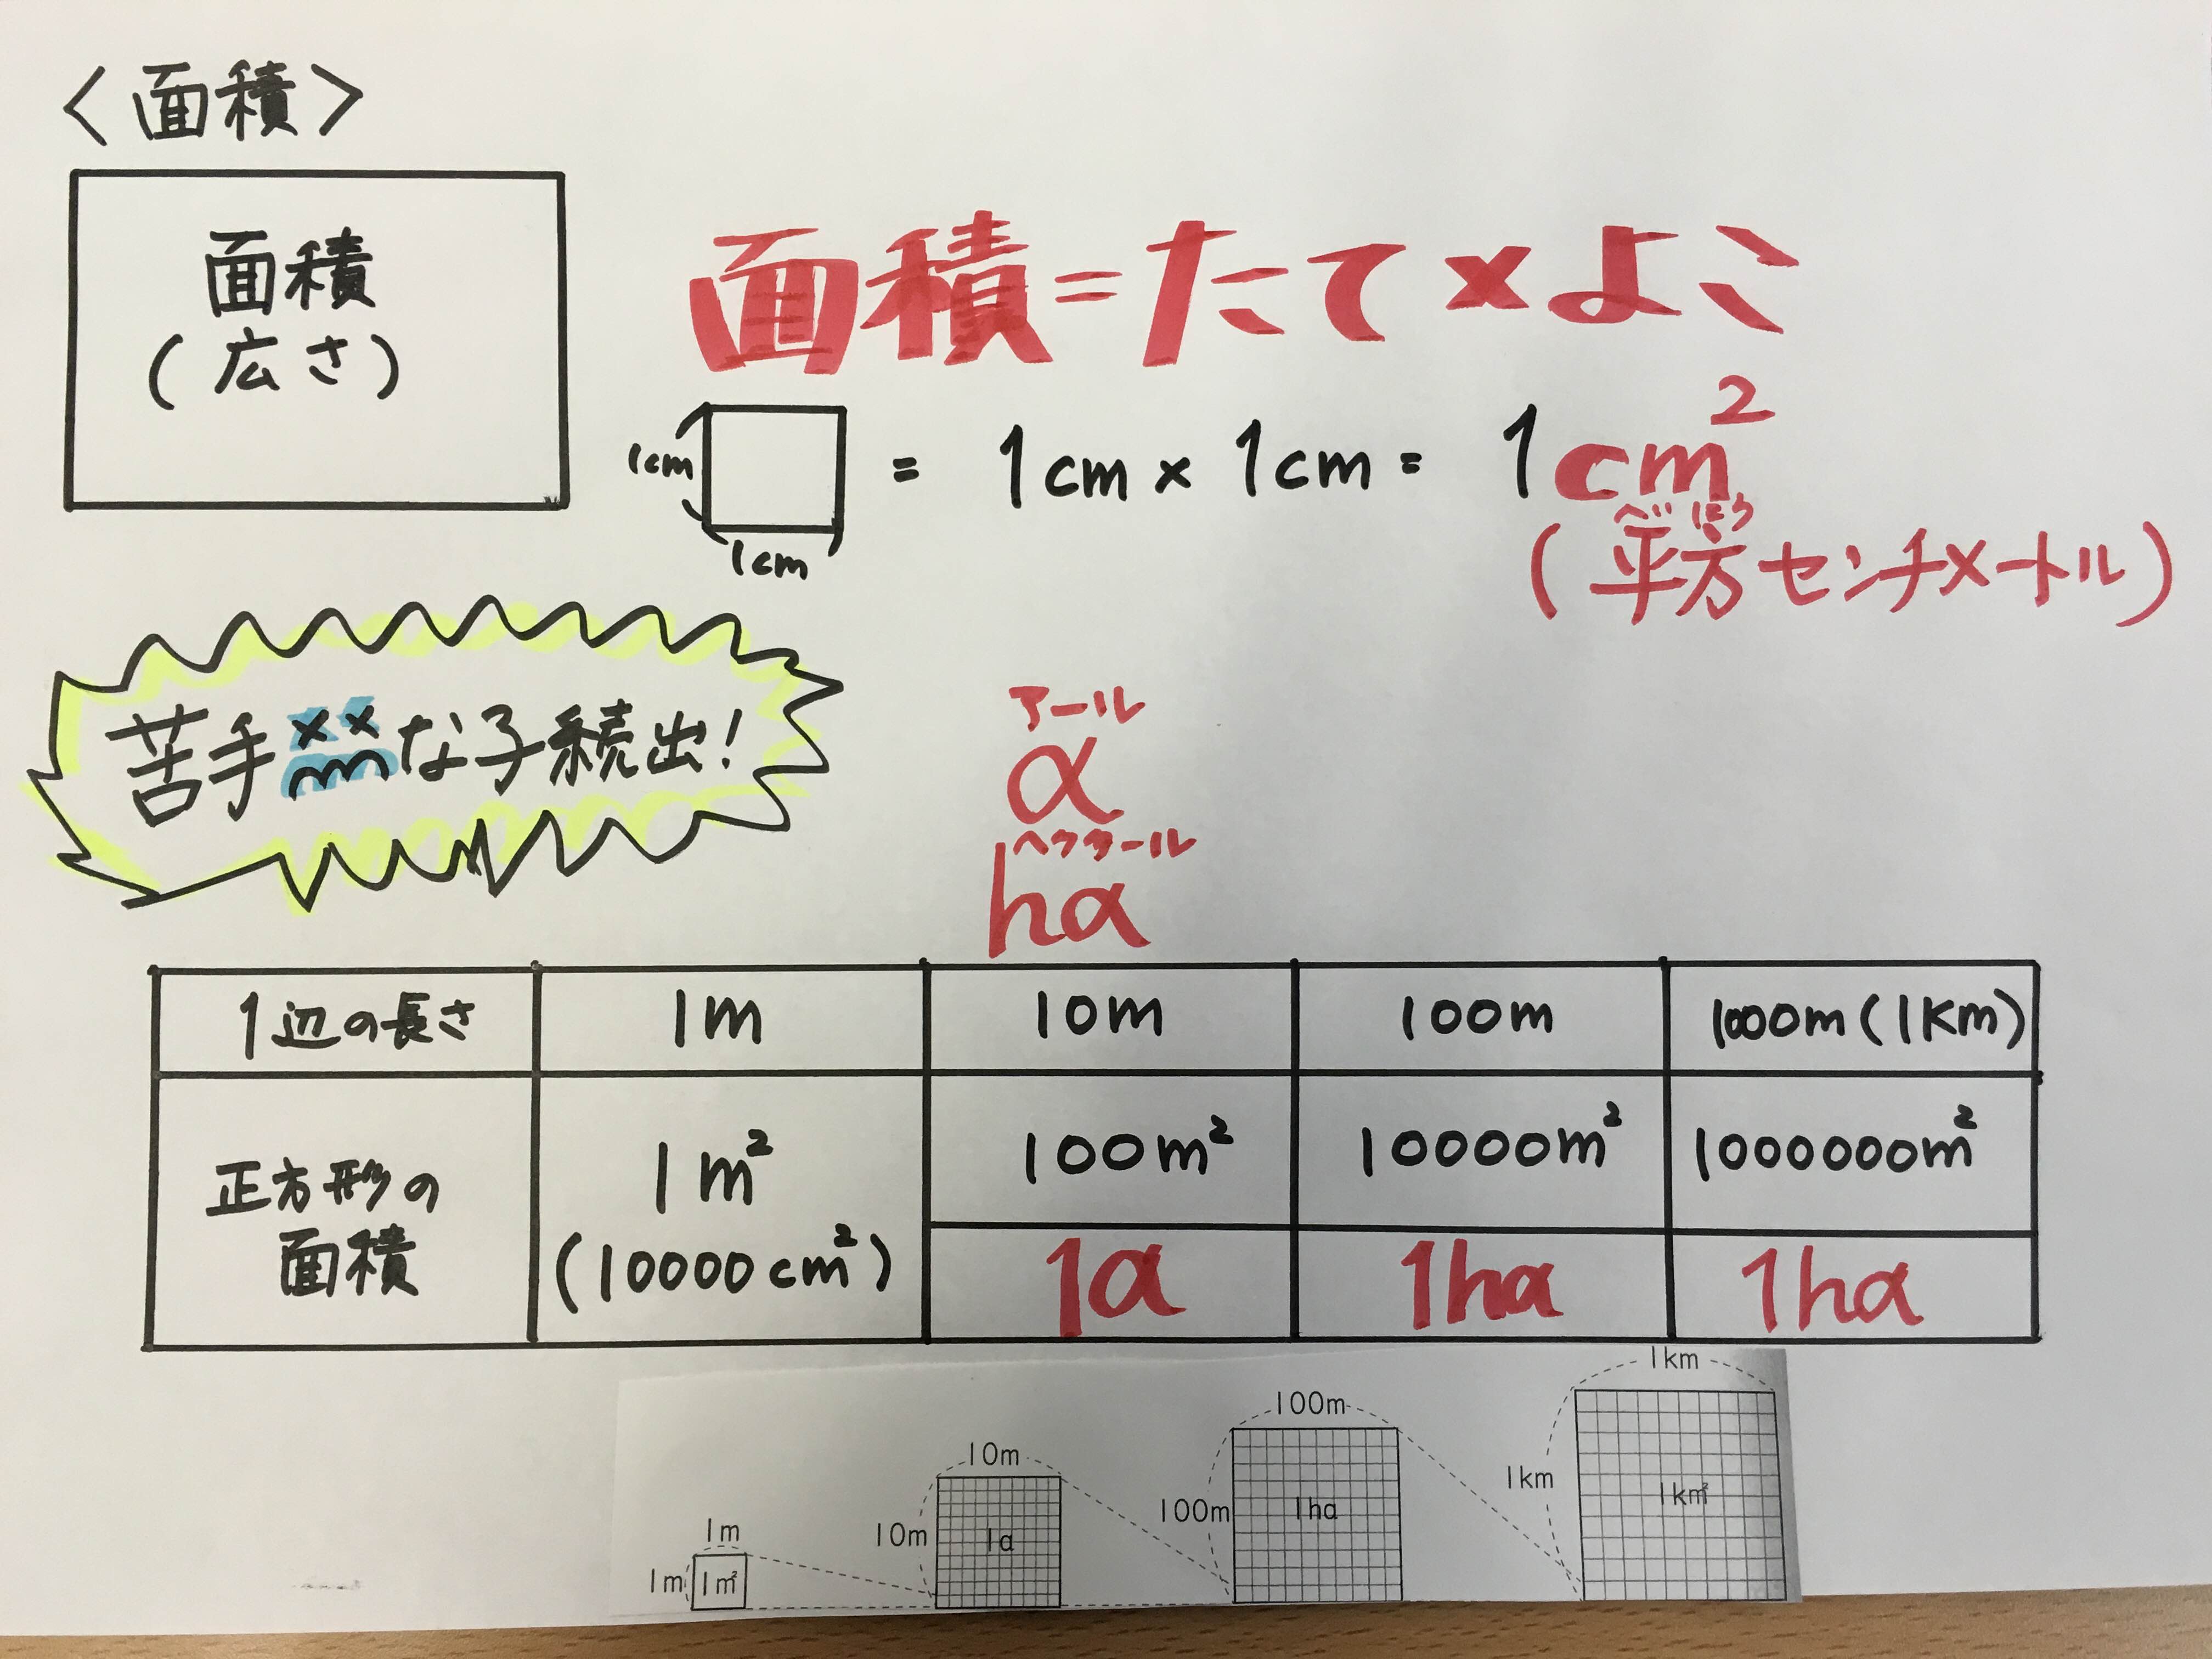 <面積>
面積
(広さ)
面積=たて×よこ
1cm
1cm
= 1cm × 1cm = 1cm²
へいほう
(平方センチメートル)
苦手な子続出!
アール
a
ヘクタール
ha
1辺の長さ 1m 10m 100m 1000m(1Km)
正方形の面積 1m² (10000cm²) 100m² 10000m² 1000000m²
1a 1ha 1ha
1m
1m
1m²
10m
10m
1a
100m
100m
1ha
1km
1km
1km²